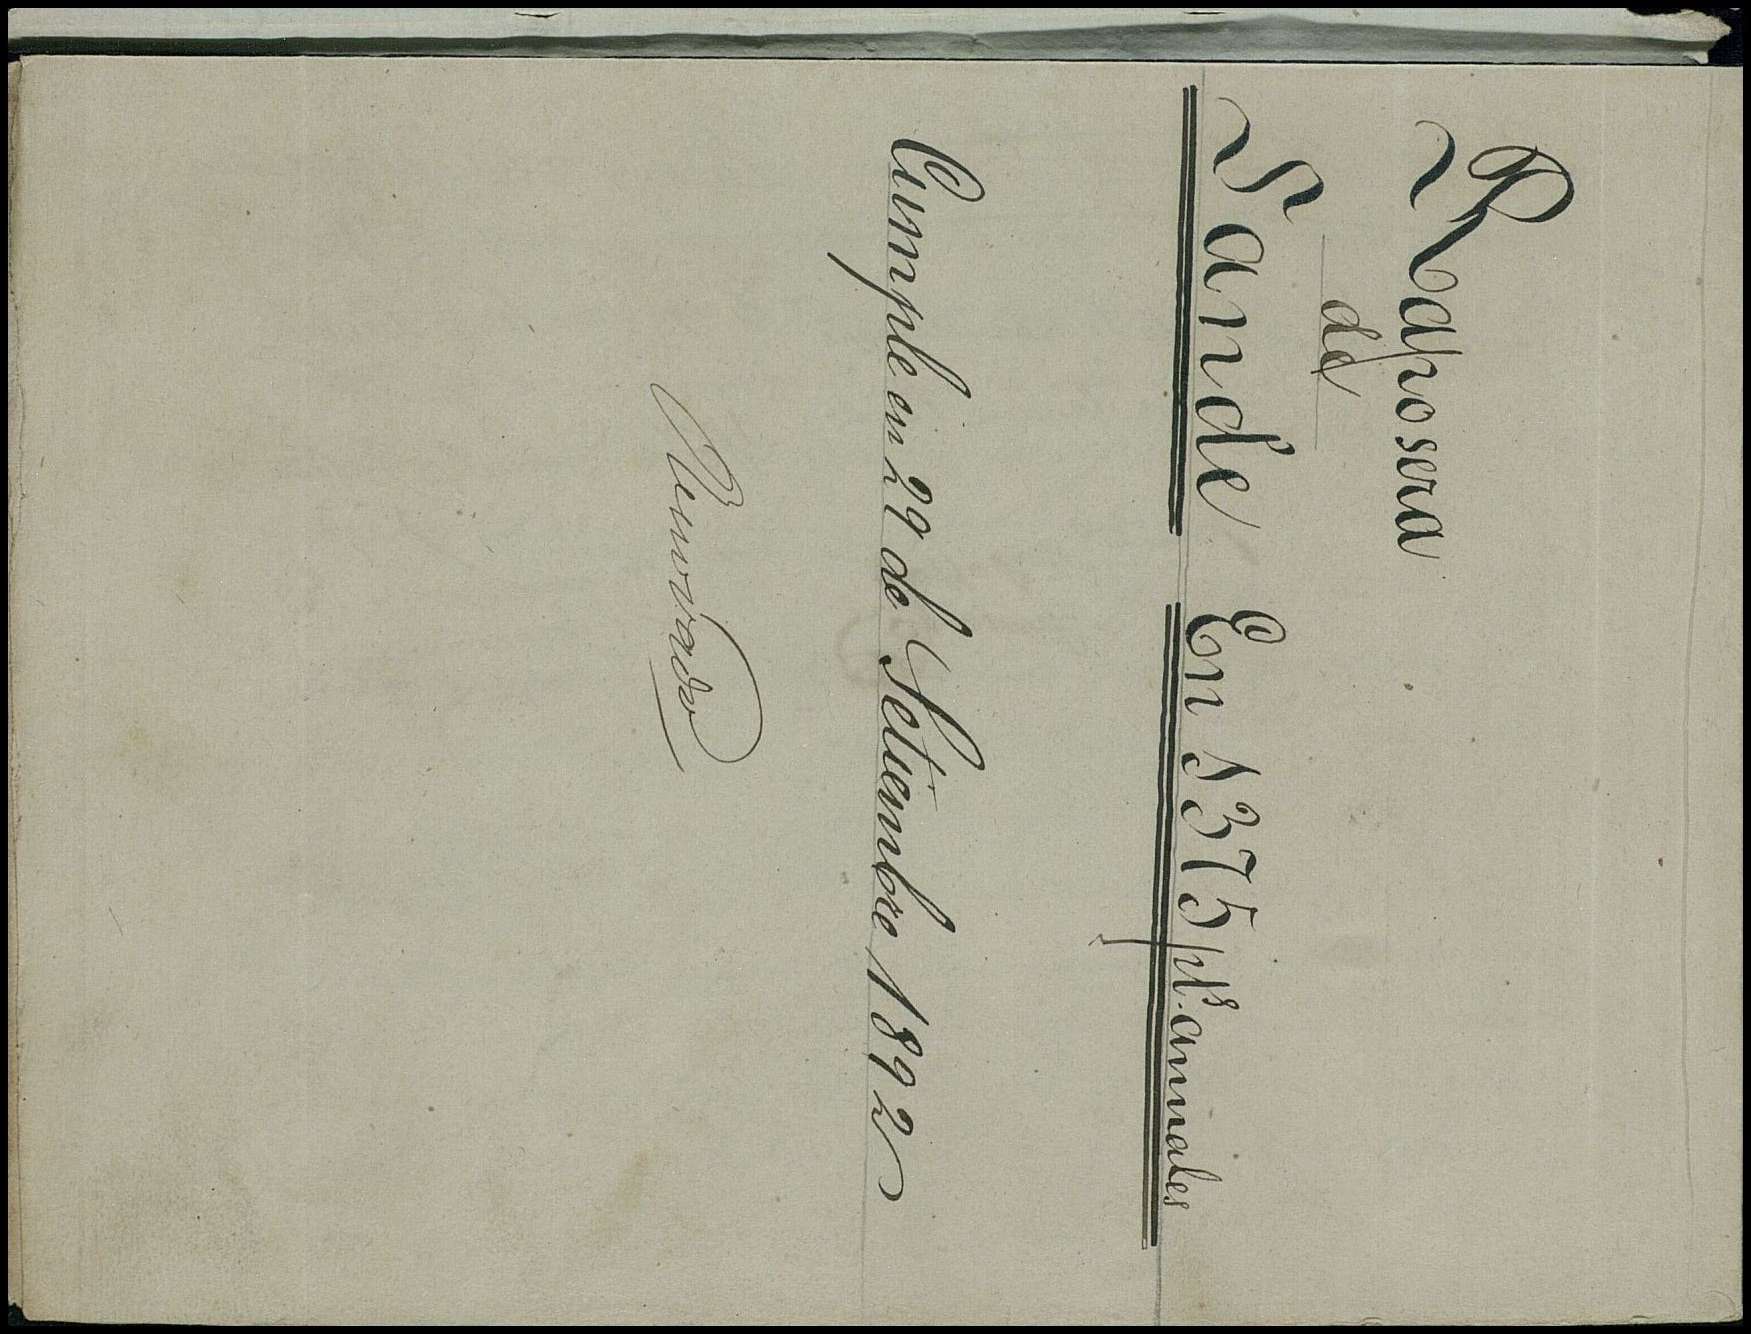 Raposera
de
Sande En 1375 pts. annales
Cumple en 29 de Setiembre 1892
Renovado